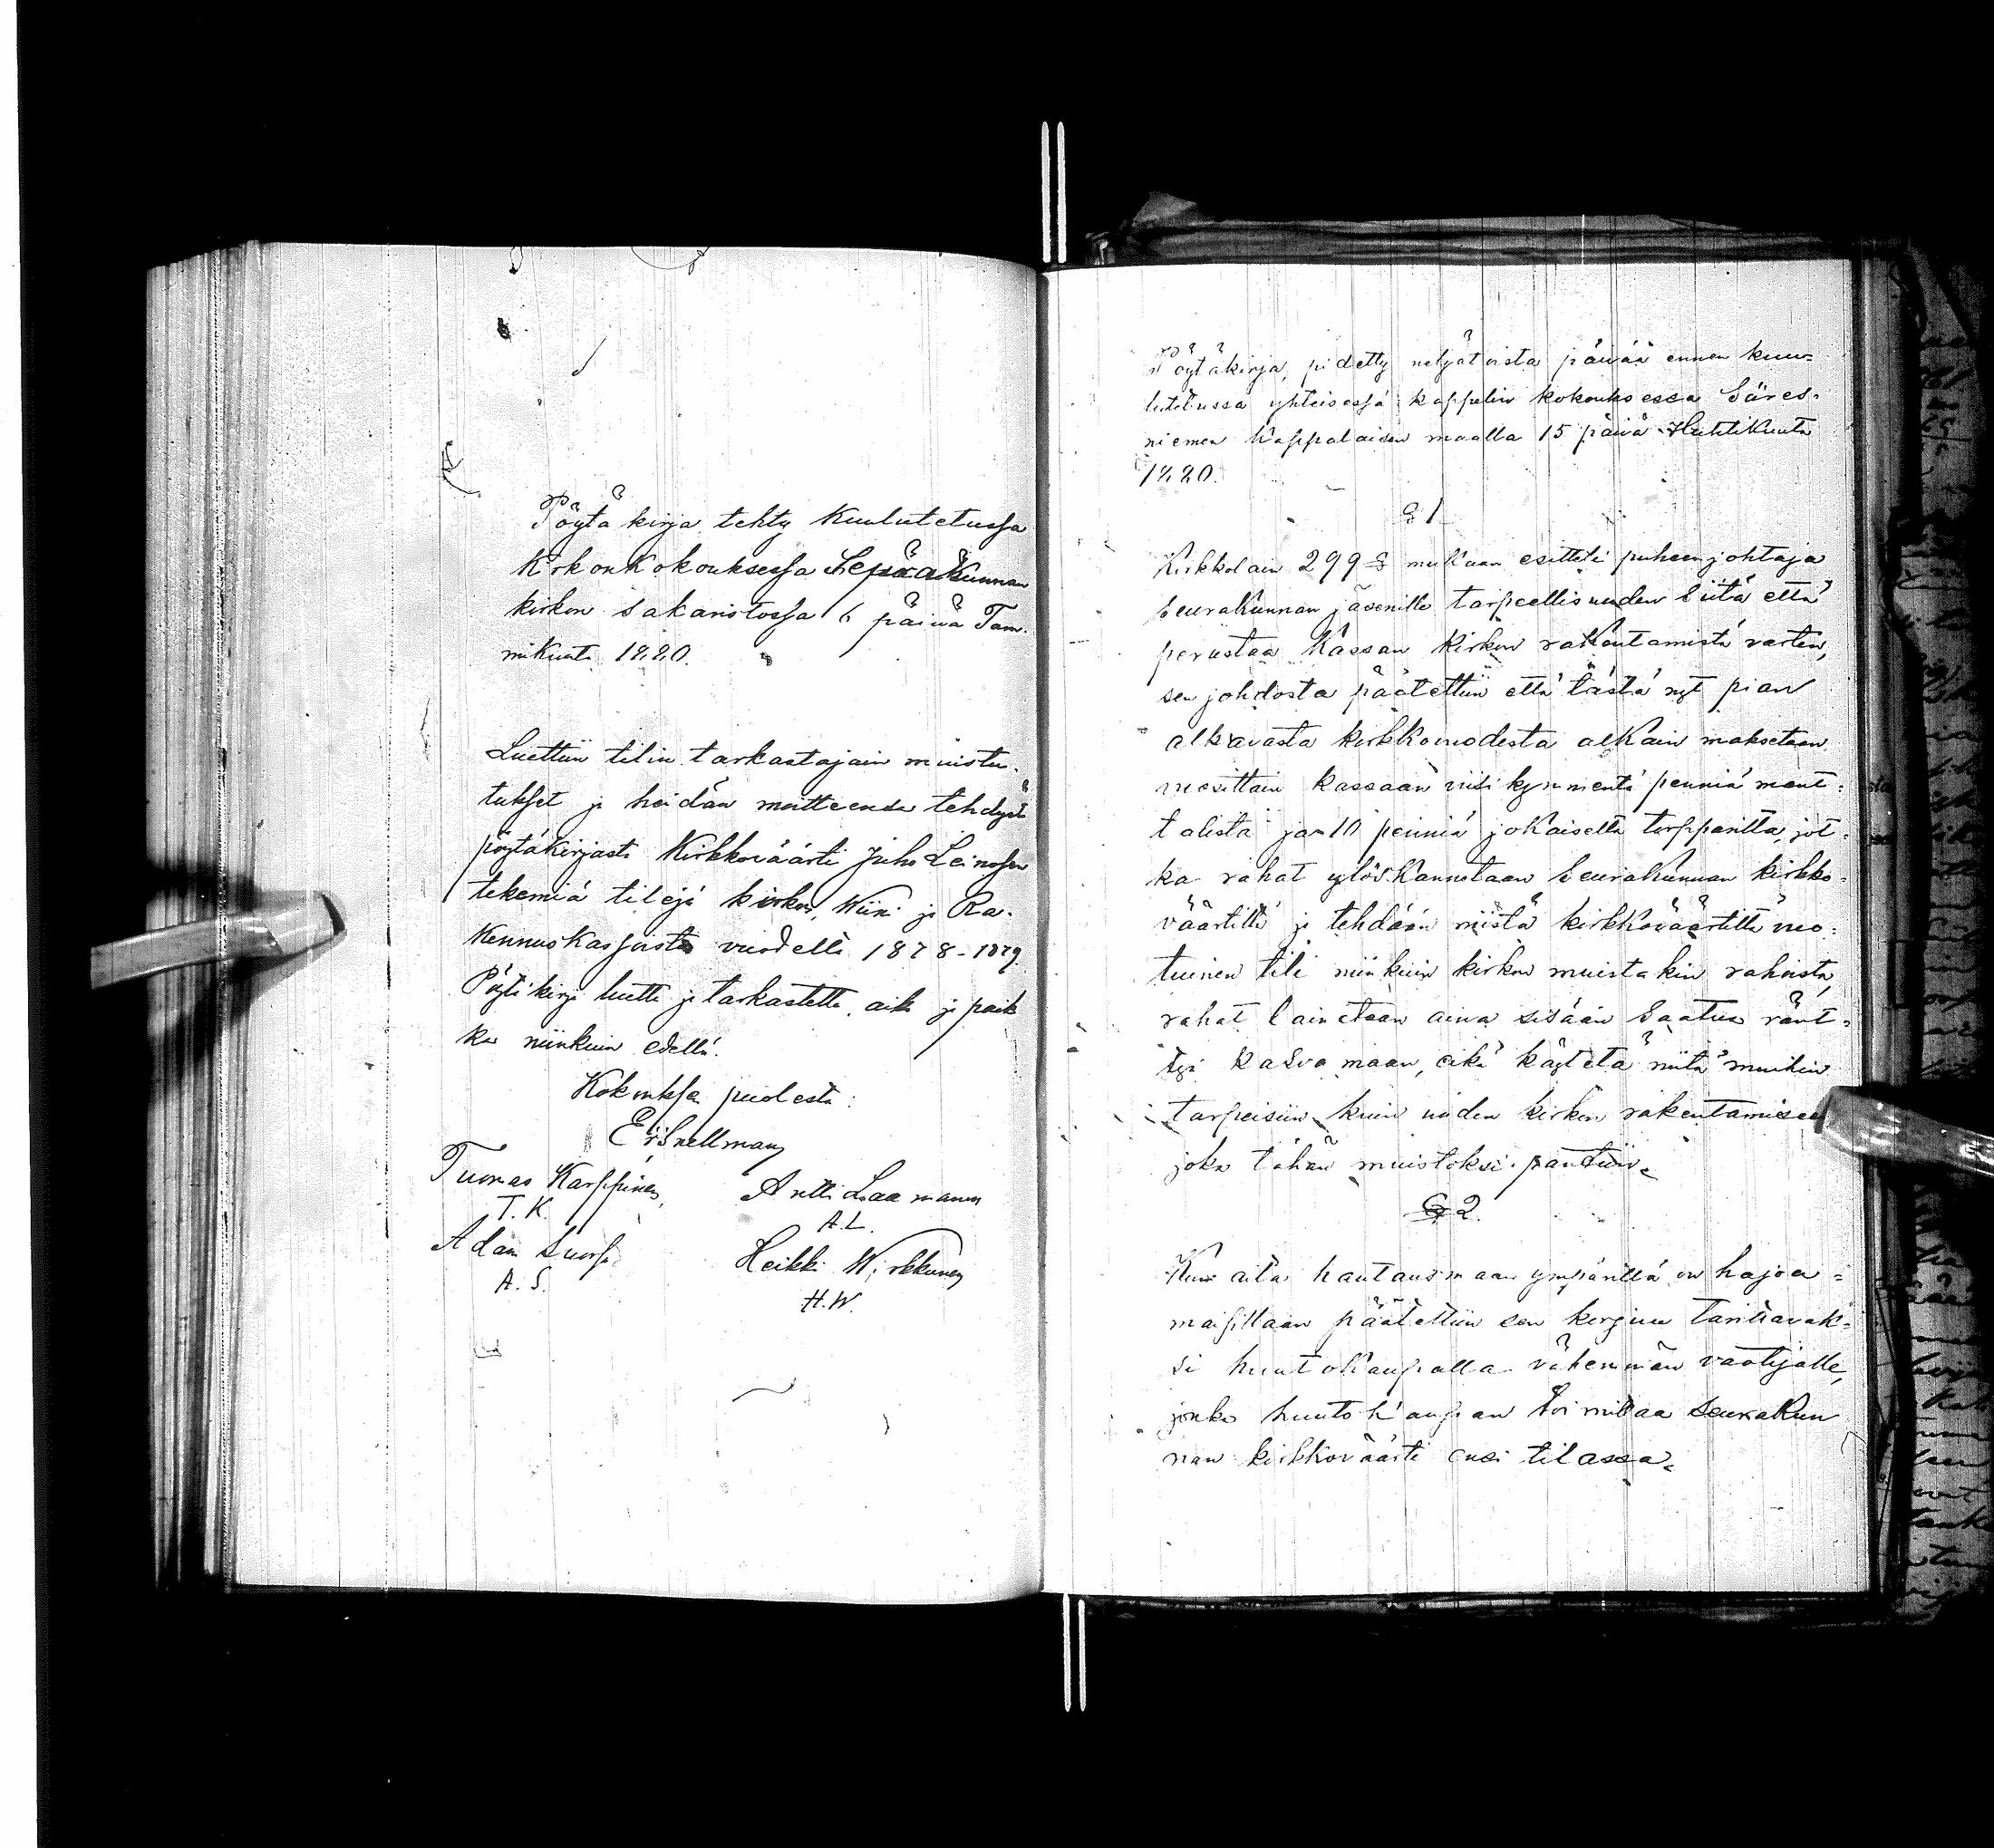 Pöytäkirja tehty kuulutetussa
Kirkonkokouksessa Sepääkunnan
kirkon sakaristossa 6 päivä Tam-
mikuuta 1880.
Luettiin tilin tarkastajain muistu-
tukset ja heidän moitteensa tehdystä
pöytäkirjasta Kirkkoväärti Juho Leinosen
tekemiä tilejä kirkon, Wiini ja Ra-
kennuskassoista vuodelta 1878-1879.
Pöytäkirja luettu ja tarkastettu, aika ja paik
ka niinkuin edellä.
Kokouksen puolesta:
Snellman
Tuomas Karppinen,
T.K.
Antti Laamanen
A.L.
Adam Suorsa
A.S.
Heikki Wirkkunen
H.W.
Pöytäkirja, pidetty neljätoista päivää ennen kuu-
lutetussa yhteisessä kappelin kokouksessa Säres-
niemen Kappalaisen maalla 15 päivä Huhtikuuta
1880.
§ 1
Kirkkolain 299 § mukaan esitteli puheenjohtaja
Seurakunnan jäsenille tarpeellisuuden siitä että
perustaa Kassan kirkon rakentamista varten,
sen johdosta päätettiin että tästä nyt pian
alkavasta kirkkovuodesta alkain maksetaan
vuosittain kassaan viisikymmentä penniä mant-
talista ja 10 penniä jokaiselta torpparilta, jot-
ka rahat ylöskannetaan Seurakunnan kirkko-
väärtiltä ja tehdään niistä kirkkoväärtiltä vuo-
tuinen tili niinkuin kirkon muistakin rahoista,
rahat lainataan aina sisään saatua ränt-
tyä kasvamaan, eikä käytetä niitä muihin
tarpeisiin kuin uuden kirkon rakentamiseen
joka tähän muistoksi pantiin.
§ 2.
Kun aita hautausmaan ympärillä on hajoa-
maisillaan päätettiin sen korjuu tarittavak-
si huutokaupalla vähemmän vaatijalle,
jonka huutokaupan toimittaa Seurakun
nan kirkkoväärti ensi tilassa.